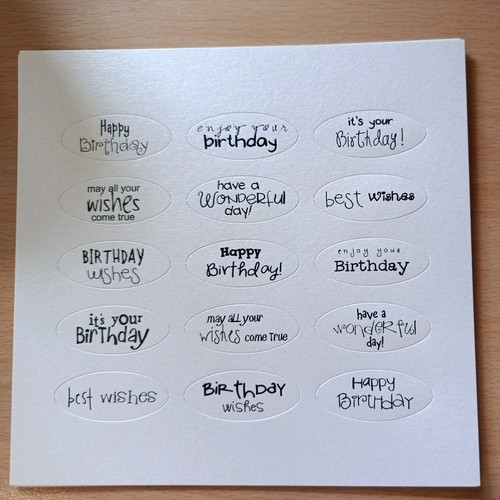 Happy
Birthday
enjoy your
birthday
it's your
Birthday!
may all your
wishes
come true
have a
WONDERFUL
day!
best wishes
BIRTHDAY
wishes
Happy
Birthday!
enjoy your
Birthday
it's your
BirThday
may all your
wishes come True
have a
wonderful
day!
best wishes
BiRthDay
wishes
Happy
BirthDAY